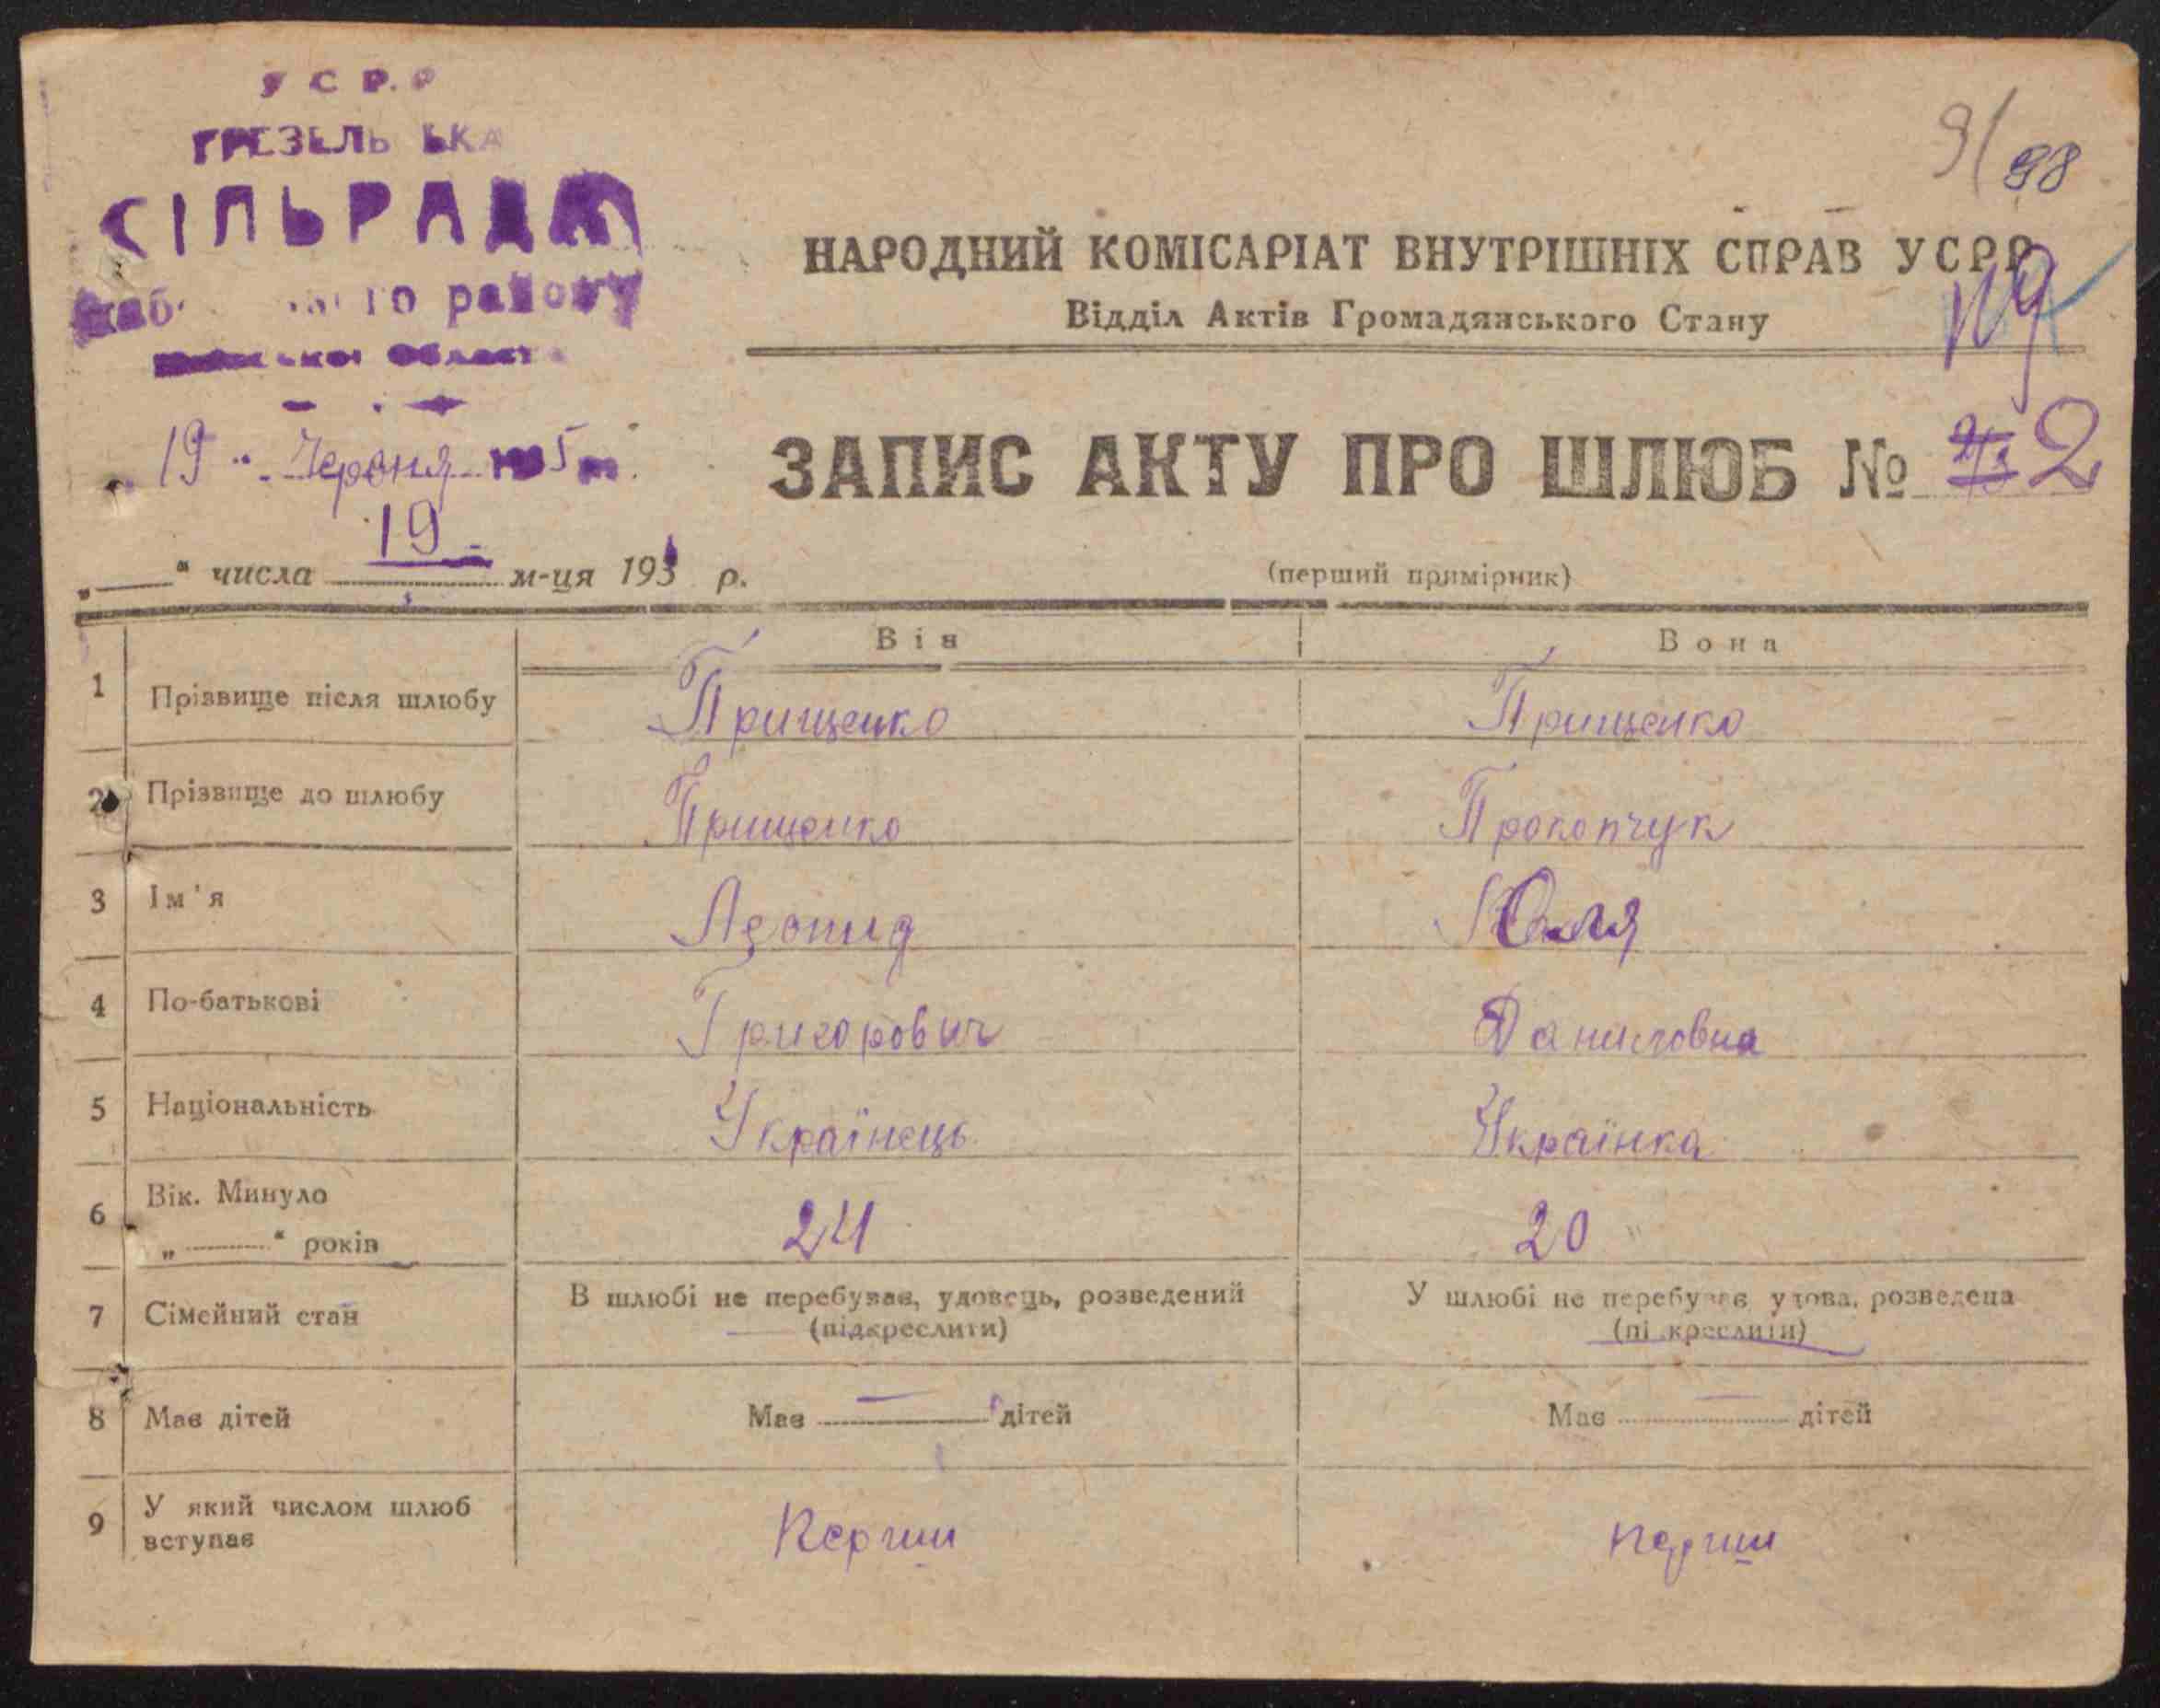 УСР.Р
СІЛЬРАДА
району
Области
9/88
НАРОДНИЙ КОМІСАРІАТ ВНУТРІШНІХ СПРАВ УСРР
Відділ Актів Громадянського Стану
№9
„19“ Червня 5
ЗАПИС АКТУ ПРО ШЛЮБ № 2
19
„——“ числа м-ця 193 р.
(перший примірник)
Він Вона
1 Прізвище після шлюбу Прищенко Прищенко
2 Прізвище до шлюбу Прищенко Прокопчук
3 Ім'я Леонид Юля
4 По-батькові Григорович Даниловна
5 Національність Українець Українка
6 Вік. Минуло
„——“ років 24 20
7 Сімейний стан В шлюбі не перебував, удовець, розведений У шлюбі не перебуває удова, розведена
(підкреслити) (підкреслити)
8 Має дітей Має — дітей Має — дітей
9 У який числом шлюб
вступає Перши перши